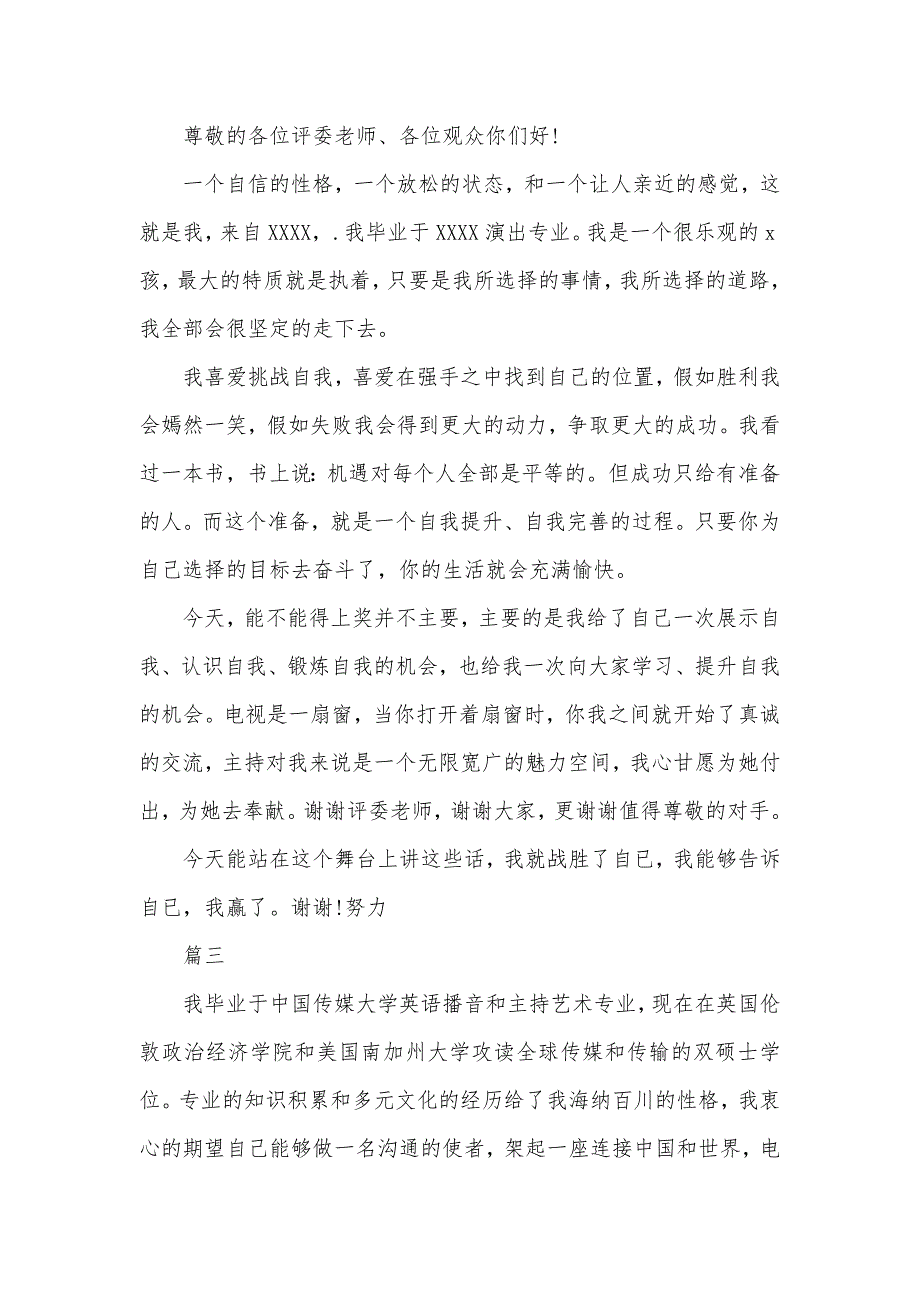 尊敬的各位评委老师、各位观众你们好!
一个自信的性格，一个放松的状态，和一个让人亲近的感觉，这
就是我，来自 XXXX，.我毕业于 XXXX 演出专业。我是一个很乐观的 x
孩，最大的特质就是执着，只要是我所选择的事情，我所选择的道路，
我全部会很坚定的走下去。
我喜爱挑战自我，喜爱在强手之中找到自己的位置，假如胜利我
会嫣然一笑，假如失败我会得到更大的动力，争取更大的成功。我看
过一本书，书上说：机遇对每个人全部是平等的。但成功只给有准备
的人。而这个准备，就是一个自我提升、自我完善的过程。只要你为
自己选择的目标去奋斗了，你的生活就会充满愉快。
今天，能不能得上奖并不主要，主要的是我给了自己一次展示自
我、认识自我、锻炼自我的机会，也给我一次向大家学习、提升自我
的机会。电视是一扇窗，当你打开着扇窗时，你我之间就开始了真诚
的交流，主持对我来说是一个无限宽广的魅力空间，我心甘愿为她付
出，为她去奉献。谢谢评委老师，谢谢大家，更谢谢值得尊敬的对手。
今天能站在这个舞台上讲这些话，我就战胜了自已，我能够告诉
自已，我赢了。谢谢!努力
篇三
我毕业于中国传媒大学英语播音和主持艺术专业，现在在英国伦
敦政治经济学院和美国南加州大学攻读全球传媒和传输的双硕士学
位。专业的知识积累和多元文化的经历给了我海纳百川的性格，我衷
心的期望自己能够做一名沟通的使者，架起一座连接中国和世界，电